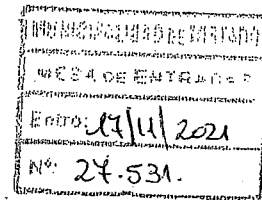 MESA DE ENTRADAS
Entro: 17/11/2021
Nº: 27.531.